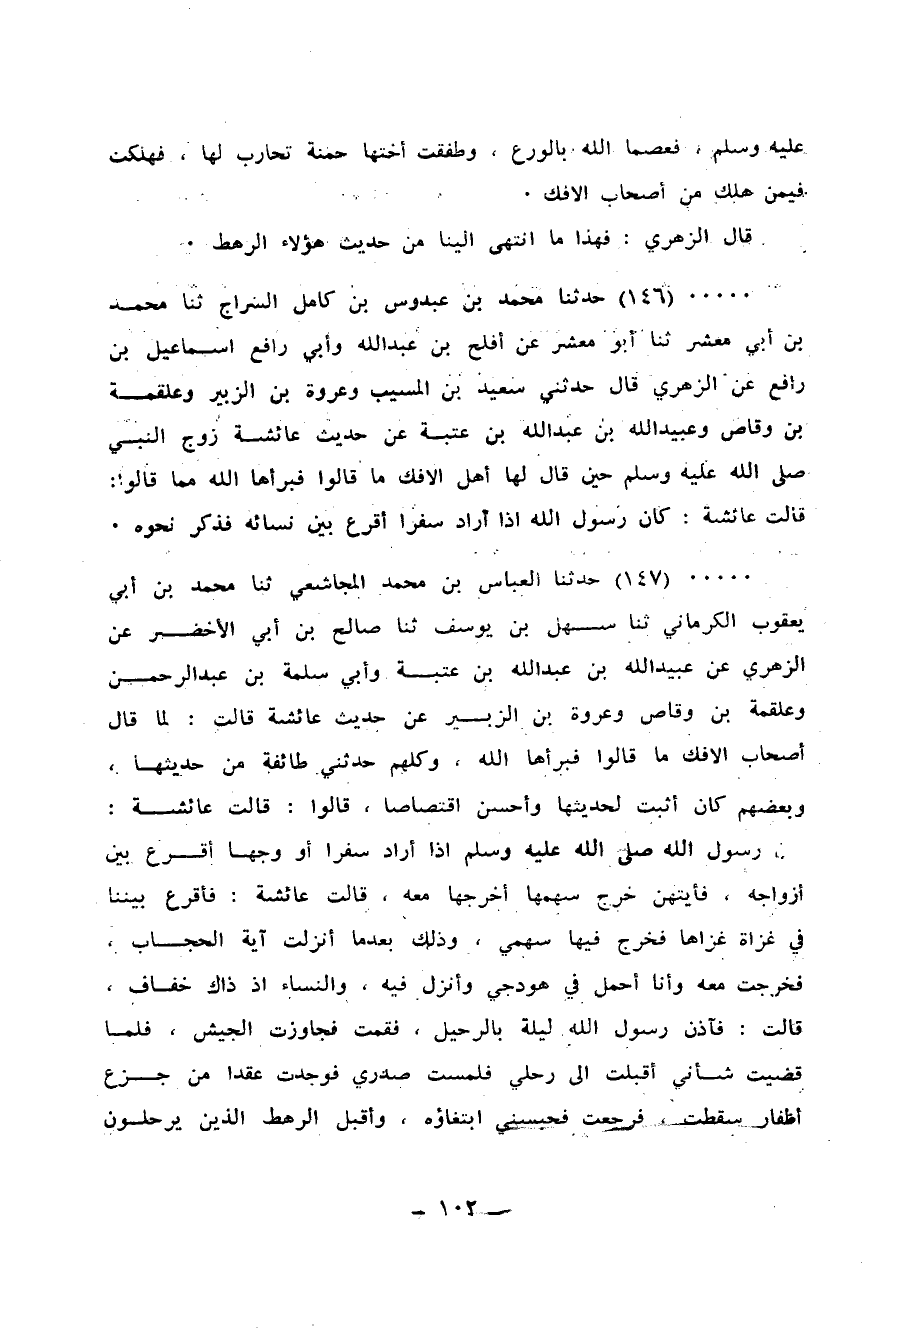 عليه وسلم ، فعصما الله بالورع ، وطفقت أختها حمنة تحارب لها ، فهلكت
فيمن هلك من أصحاب الافك ٠
قال الزهري : فهذا ما انتهى الينا من حديث هؤلاء الرهط ٠
٠٠٠٠٠ (١٤٦) حدثنا محمد بن عبدوس بن كامل السراج ثنا محمد
بن أبي معشر ثنا أبو معشر عن أفلح بن عبدالله وأبي رافع اسماعيل بن
رافع عن الزهري قال حدثني سعيد بن المسيب وعروة بن الزبير وعلقمة
بن وقاص وعبيدالله بن عبدالله بن عتبة عن حديث عائشة زوج النبي
صلى الله عليه وسلم حين قال لها أهل الافك ما قالوا فبرأها الله مما قالوا:
قالت عائشة : كان رسول الله اذا أراد سفرا أقرع بين نسائه فذكر نحوه ٠
٠٠٠٠٠ (١٤٧) حدثنا العباس بن محمد المجاشعي ثنا محمد بن أبي
يعقوب الكرماني ثنا سهل بن يوسف ثنا صالح بن أبي الأخضر عن
الزهري عن عبيدالله بن عبدالله بن عتبة وأبي سلمة بن عبدالرحمن
وعلقمة بن وقاص وعروة بن الزبير عن حديث عائشة قالت : لما قال
أصحاب الافك ما قالوا فبرأها الله ، وكلهم حدثني طائفة من حديثها ،
وبعضهم كان أثبت لحديثها وأحسن اقتصاصا ، قالوا : قالت عائشة :
رسول الله صلى الله عليه وسلم اذا أراد سفرا أو وجها أقرع بين
أزواجه ، فأيتهن خرج سهمها أخرجها معه ، قالت عائشة : فأقرع بيننا
في غزاة غزاها فخرج فيها سهمي ، وذلك بعدما أنزلت آية الحجاب ،
فخرجت معه وأنا أحمل في هودجي وأنزل فيه ، والنساء اذ ذاك خفاف ،
قالت : فآذن رسول الله ليلة بالرحيل ، فقمت فجاوزت الجيش ، فلما
قضيت شأني أقبلت الى رحلي فلمست صدري فوجدت عقدا من جزع
أظفار سقطت ، فرجعت فحبسني ابتغاؤه ، وأقبل الرهط الذين يرحلون
– ١٠٢ –